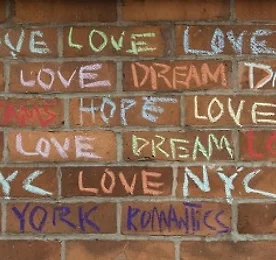 VE LOVE LOVE
LOVE DREAM D
HOPE LOVE
LOVE DREAM LO
YC LOVE NYC
YORK ROMANTICS